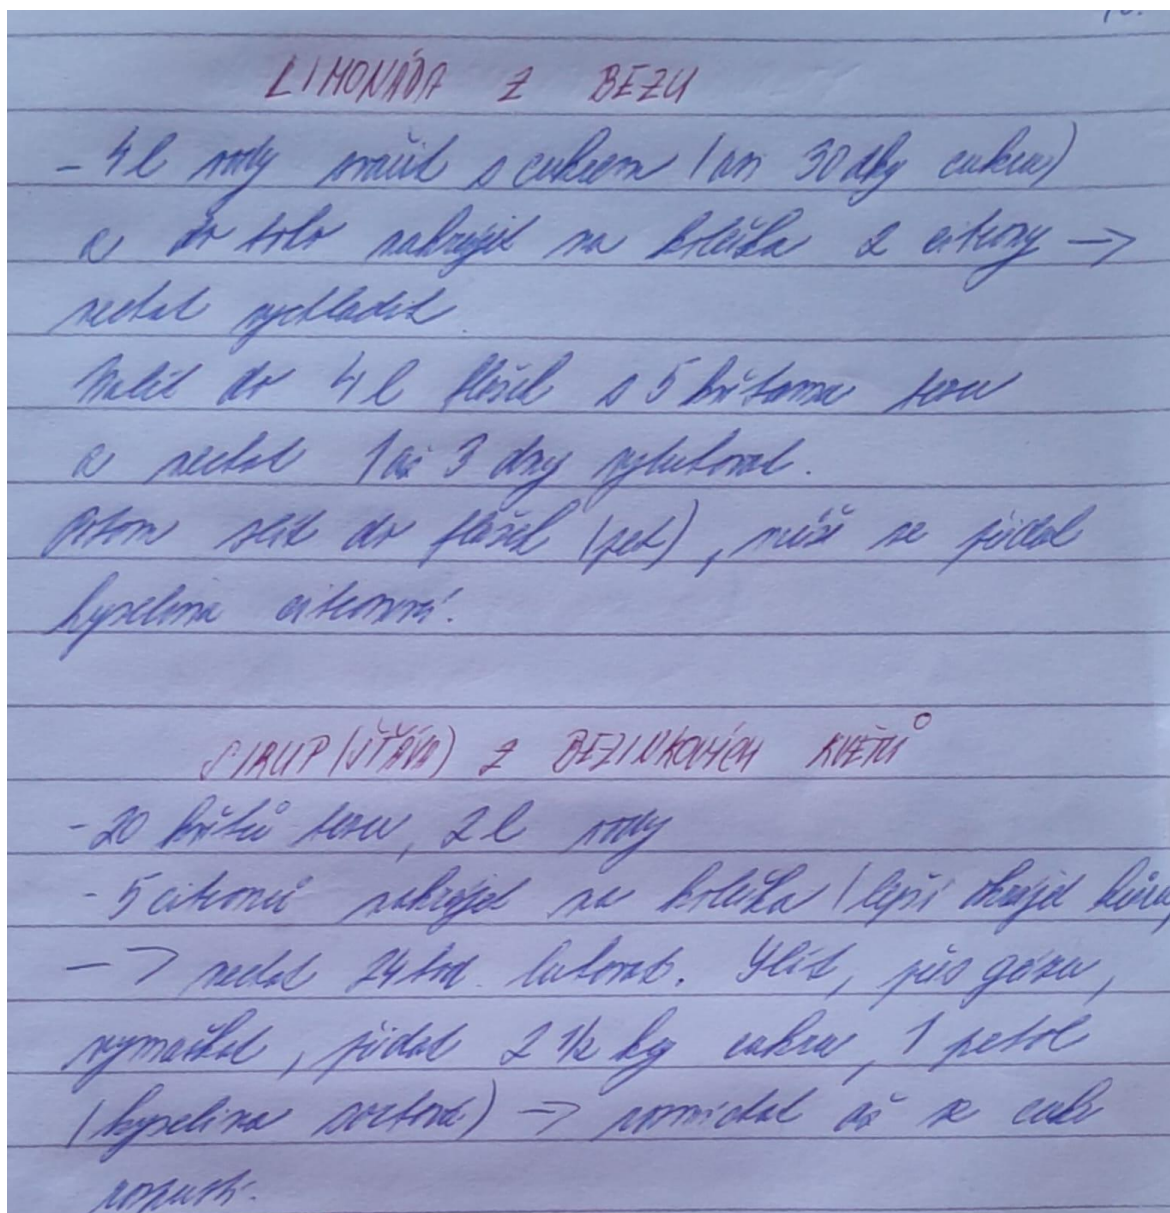 LIMONÁDA Z BEZU
- 4 l vody svařit s cukrem ( 30 dkg cukru)
a do toho nakrájet na kolečka 2 citrony →
nechat vychladit
Nalít do 4 l flašek s 5 květama bezu
a nechat 1 až 3 dny vyluhovat.
Potom slít do flašek (pet), může se přidat
kyselina citronová.
SIRUP (ŠŤÁVA) Z BEZINKOVÝCH KVĚTŮ
- 20 květů bezu, 2 l vody
- 5 citronů nakrájet na kolečka (lepší okrájet kůru
→ nechat 24 hod. luhovat. Slít, přes gázu,
vymačkat, přidat 2 1/2 kg cukru, 1
(kyselina ) → rozmíchat až se cukr
rozpustí.